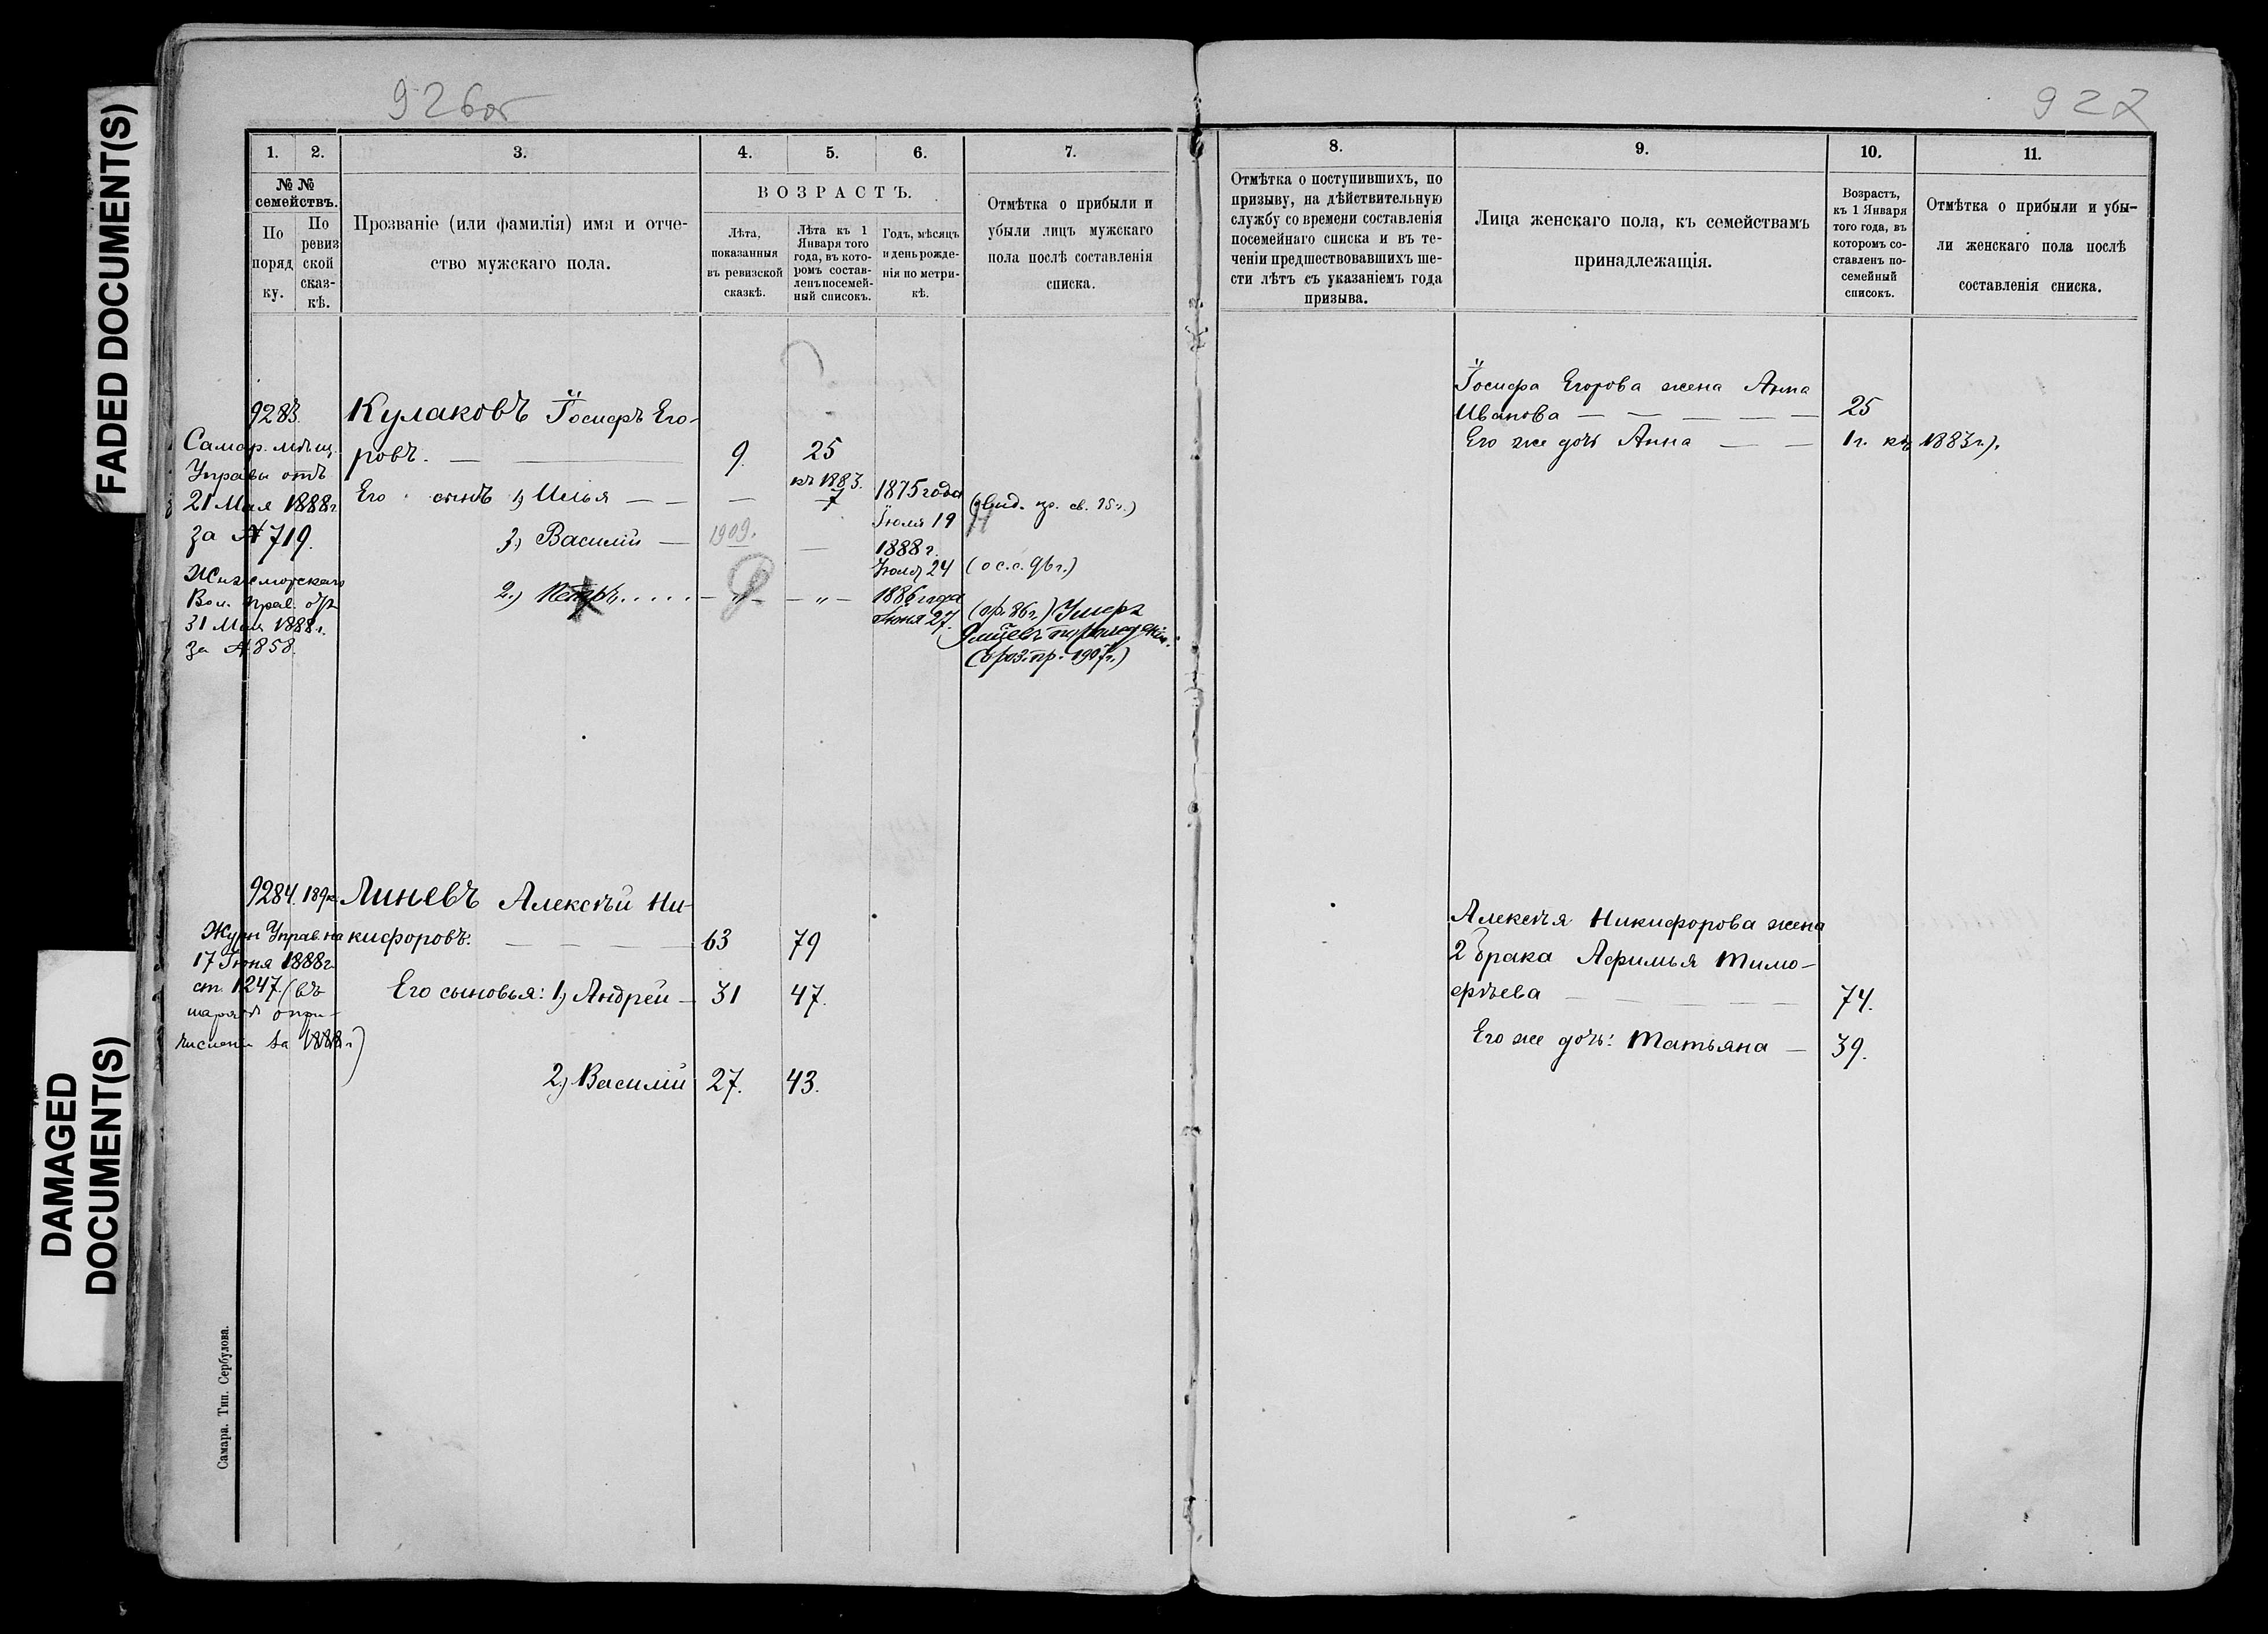 FADED DOCUMENT(S)
DAMAGED
DOCUMENT(S)
926об
1.
2.
3.
4.
5.
6.
7.
№ №
семействъ.
По
поряд
ку.
По
ревиз
ской
сказ-
кѣ.
Прозваніе (или фамилія) имя и отче-
ство мужскаго пола.
ВОЗРАСТЪ.
Лѣта,
показанныя
въ ревизской
сказкѣ.
Лѣта къ 1
Января того
года, въ кото-
ромъ состав-
ленъ посемей-
ный списокъ.
Годъ, мѣсяцъ
и день рожде-
нія по метри-
кѣ.
Отмѣтка о прибыли и
убыли лицъ мужскаго
пола послѣ составленія
списка.
9283.
Самар. мѣщ.
Управы отъ
21 Мая 1888г.
за № 719.
Вол. прав. отъ
31 Мая 1888г.
за № 858.
Кулаковъ Іосифъ Его-
ровъ. 9. 25
къ 1883.
Его сынъ 1, Илья — — — 7 1875 года
Іюля 19
3, Василій — 1909. — 1888 г.
24 (о с.с. 96 г.)
2.) Петръ..... — „ — — „ — 1886 года
Іюня 27.
(ор. 86 г.) Умеръ
(ъ роз. пр. 1907 г.)
9284. 189
Журн Управ. на
17 Іюня 1888г.
ст. 1247. (въ
Линевъ Алексѣй Ни-
кифоровъ. — — — — 63 79
Его сыновья: 1, Андрей — 31 47.
2.) Василій 27. 43.
Самара. Тип. Сербулова.
927
8.
9.
10.
11.
Отмѣтка о поступившихъ, по
призыву, на дѣйствительную
службу со времени составленія
посемейнаго списка и въ те-
ченіи предшествовавшихъ ше-
сти лѣтъ съ указаніемъ года
призыва.
Лица женскаго пола, къ семействамъ
принадлежащія.
Возрастъ,
къ 1 Января
того года, въ
которомъ со-
ставленъ по-
семейный
списокъ.
Отмѣтка о прибыли и убы-
ли женскаго пола послѣ
составленія списка.
Іосифа Егорова жена Анна
Иванова — — — — — 25
Его же дочь Анна — — 1 г. къ 1883 г.).
Алексѣя Никифорова жена
2 брака Афимья Тимо-
фѣева — — — — — 74.
Его же дочь: Татьяна — 39.